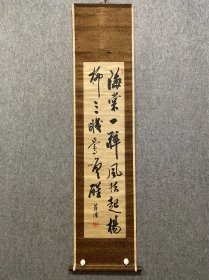 海棠一醉風扶起楊
柳三眠鶯喚醒